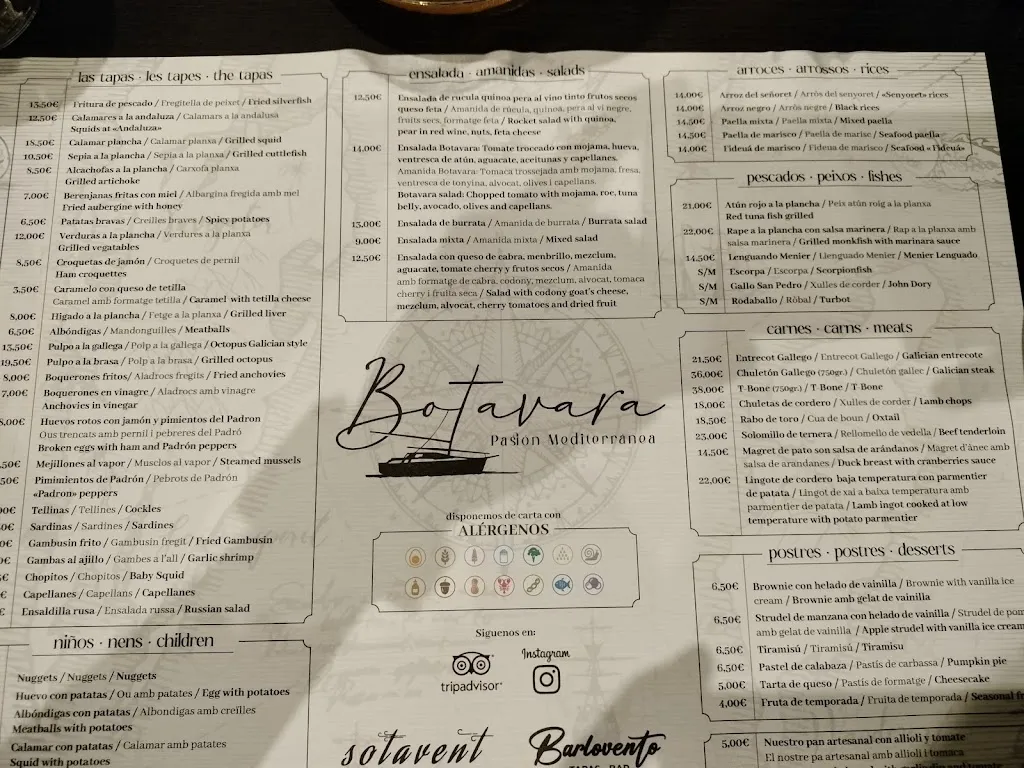 las tapas · les tapes · the tapas
13,50€ Fritura de pescado / Fregitella de peixet / Fried silverfish
12,50€ Calamares a la andaluza / Calamars a la andalusa
Squids at «Andaluza»
18,50€ Calamar plancha / Calamar planxa / Grilled squid
10,50€ Sepia a la plancha / Sepia a la planxa / Grilled cuttlefish
8,50€ Alcachofas a la plancha / Carxofa planxa
Grilled artichoke
7,00€ Berenjanas fritas con miel / Albargina fregida amb mel
Fried aubergine with honey
6,50€ Patatas bravas / Creilles braves / Spicy potatoes
12,00€ Verduras a la plancha / Verdures a la planxa
Grilled vegatables
8,50€ Croquetas de jamón / Croquetes de pernil
Ham croquettes
3,50€ Caramelo con queso de tetilla
Caramel amb formatge tetilla / Caramel with tetilla cheese
8,00€ Higado a la plancha / Fetge a la planxa / Grilled liver
6,50€ Albóndigas / Mandonguilles / Meatballs
13,50€ Pulpo a la gallega / Polp a la gallega / Octopus Galician style
19,50€ Pulpo a la brasa / Polp a la brasa / Grilled octopus
8,00€ Boquerones fritos / Aladrocs fregits / Fried anchovies
7,00€ Boquerones en vinagre / Aladrocs amb vinagre
Anchovies in vinegar
8,00€ Huevos rotos con jamón y pimientos del Padron
Ous trencats amb pernil i pebreres del Padró
Broken eggs with ham and Padrón peppers
,50€ Mejillones al vapor / Musclos al vapor / Steamed mussels
50€ Pimimientos de Padrón / Pebrots de Padrón
«Padron» peppers
0€ Tellinas / Tellines / Cockles
0€ Sardinas / Sardines / Sardines
0€ Gambusin frito / Gambusin fregit / Fried Gambusin
€ Gambas al ajillo / Gambes a l'all / Garlic shrimp
€ Chopitos / Chopitos / Baby Squid
€ Capellanes / Capellans / Capellanes
€ Ensaldilla rusa / Ensalada russa / Russian salad
niños · nens · children
Nuggets / Nuggets / Nuggets
Huevo con patatas / Ou amb patates / Egg with potatoes
Albóndigas con patatas / Albondigas amb creïlles
Meatballs with potatoes
Calamar con patatas / Calamar amb patates
Squid with potatoes
ensalada · amanidas · salads
12,50€ Ensalada de rucula quinoa pera al vino tinto frutos secos
queso feta / Amanida de rucula, quinoa, pera al vi negre,
fruits secs, formatge feta / Rocket salad with quinoa,
pear in red wine, nuts, feta cheese
14,00€ Ensalada Botavara: Tomate troceado con mojama, hueva,
ventresca de atún, aguacate, aceitunas y capellanes.
Amanida Botavara: Tomaca trossejada amb mojama, fresa,
ventresca de tonyina, alvocat, olives i capellans.
Botavara salad: Chopped tomato with mojama, roe, tuna
belly, avocado, olives and capellans.
13,00€ Ensalada de burrata / Amanida de burrata / Burrata salad
9,00€ Ensalada mixta / Amanida mixta / Mixed salad
12,50€ Ensalada con queso de cabra, menbrillo, mezclum,
aguacate, tomate cherry y frutos secos / Amanida
amb formatge de cabra, codony, mezclum, alvocat, tomaca
cherry i fruita seca / Salad with codony goat's cheese,
mezclum, alvocat, cherry tomatoes and dried fruit
Botavara
Pasion Mediterranea
disponemos de carta con
ALÉRGENOS
Siguenos en:
tripadvisor
Instagram
sotavent
Barlovento
TAPAS · BAR
arroces · arrossos · rices
14,00€ Arroz del señoret / Arròs del senyoret / «Senyoret» rices
14,00€ Arroz negro / Arròs negre / Black rices
14,50€ Paella mixta / Paella mixta / Mixed paella
14,50€ Paella de marisco / Paella de marisc / Seafood paella
14,00€ Fideuá de marisco / Fideua de marisc / Seafood «Fideuá»
pescados · peixos · fishes
21,00€ Atún rojo a la plancha / Peix atún roig a la planxa
Red tuna fish grilled
22,00€ Rape a la plancha con salsa marinera / Rap a la planxa amb
salsa marinera / Grilled monkfish with marinara sauce
14,50€ Lenguando Menier / Llenguado Menier / Menier Lenguado
S/M Escorpa / Escorpa / Scorpionfish
S/M Gallo San Pedro / Xulles de corder / John Dory
S/M Rodaballo / Ròbal / Turbot
carnes · carns · meats
21,50€ Entrecot Gallego / Entrecot Gallego / Galician entrecote
36,00€ Chuletón Gallego (750gr.) / Chuletón gallec / Galician steak
38,00€ T-Bone (750gr.) / T-Bone / T-Bone
18,00€ Chuletas de cordero / Xulles de corder / Lamb chops
18,50€ Rabo de toro / Cua de boun / Oxtail
23,00€ Solomillo de ternera / Rellomello de vedella / Beef tenderloin
14,50€ Magret de pato son salsa de arándanos / Magret d'ànec amb
salsa de arandanes / Duck breast with cranberries sauce
22,00€ Lingote de cordero baja temperatura con parmentier
de patata / Lingot de xai a baixa temperatura amb
parmentier de patata / Lamb ingot cooked at low
temperature with potato parmentier
postres · postres · desserts
6,50€ Brownie con helado de vainilla / Brownie with vanilla ice
cream / Brownie amb gelat de vainilla
6,50€ Strudel de manzana con helado de vainilla / Strudel de pom
amb gelat de vainilla / Apple strudel with vanilla ice cream
6,50€ Tiramisú / Tiramisú / Tiramisu
6,50€ Pastel de calabaza / Pastís de carbassa / Pumpkin pie
5,00€ Tarta de queso / Pastis de formatge / Cheesecake
4,00€ Fruta de temporada / Fruita de temporada / Seasonal fr
5,00€ Nuestro pan artesanal con allioli y tomate
El nostre pa artesanal amb allioli i tomaca